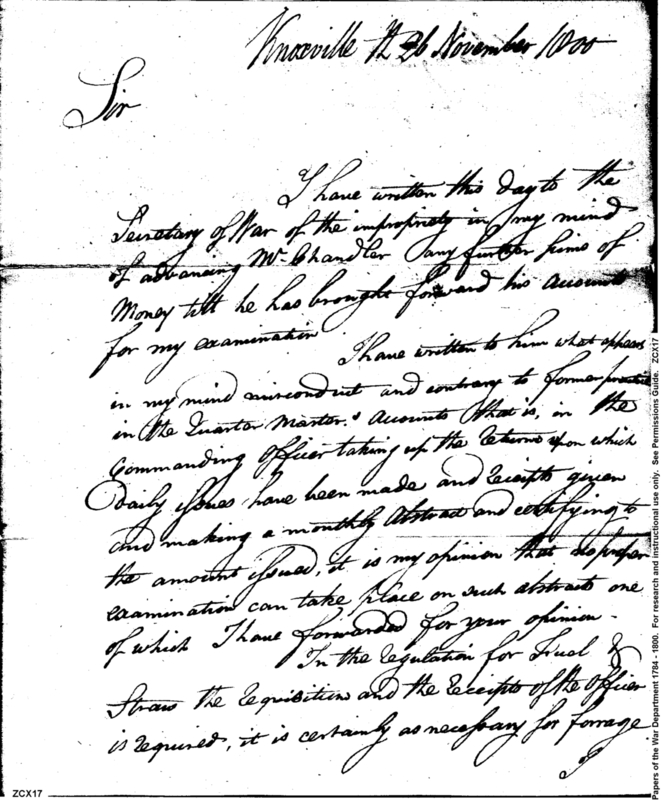 Knoxville th 26 November 1800
Sir
I have written this day to the
Secretary of War of the impropriety in my mind
of advancing Mr Chandler any further sums of
Money till he has brought forward his Accounts
for my examination
I have written to him what appears
in my mind misconduct and contrary to former practice
in the Quarter Master's Accounts that is, in the
Commanding Officer taking up the returns upon which
Daily issues have been made and Receipts given
and making a monthly Abstract and certifying to
the amount issued, it is my opinion that no proper
examination can take place on such abstracts one
of which I have forwarded for your opinion.
In the regulation for Fuel &
Straw the Requisition and the Receipts of the Officer
is required, it is certainly as necessary for forrage
ZCX17
Papers of the War Department 1784 - 1800. For research and instructional use only. See Permissions Guide. ZCX17